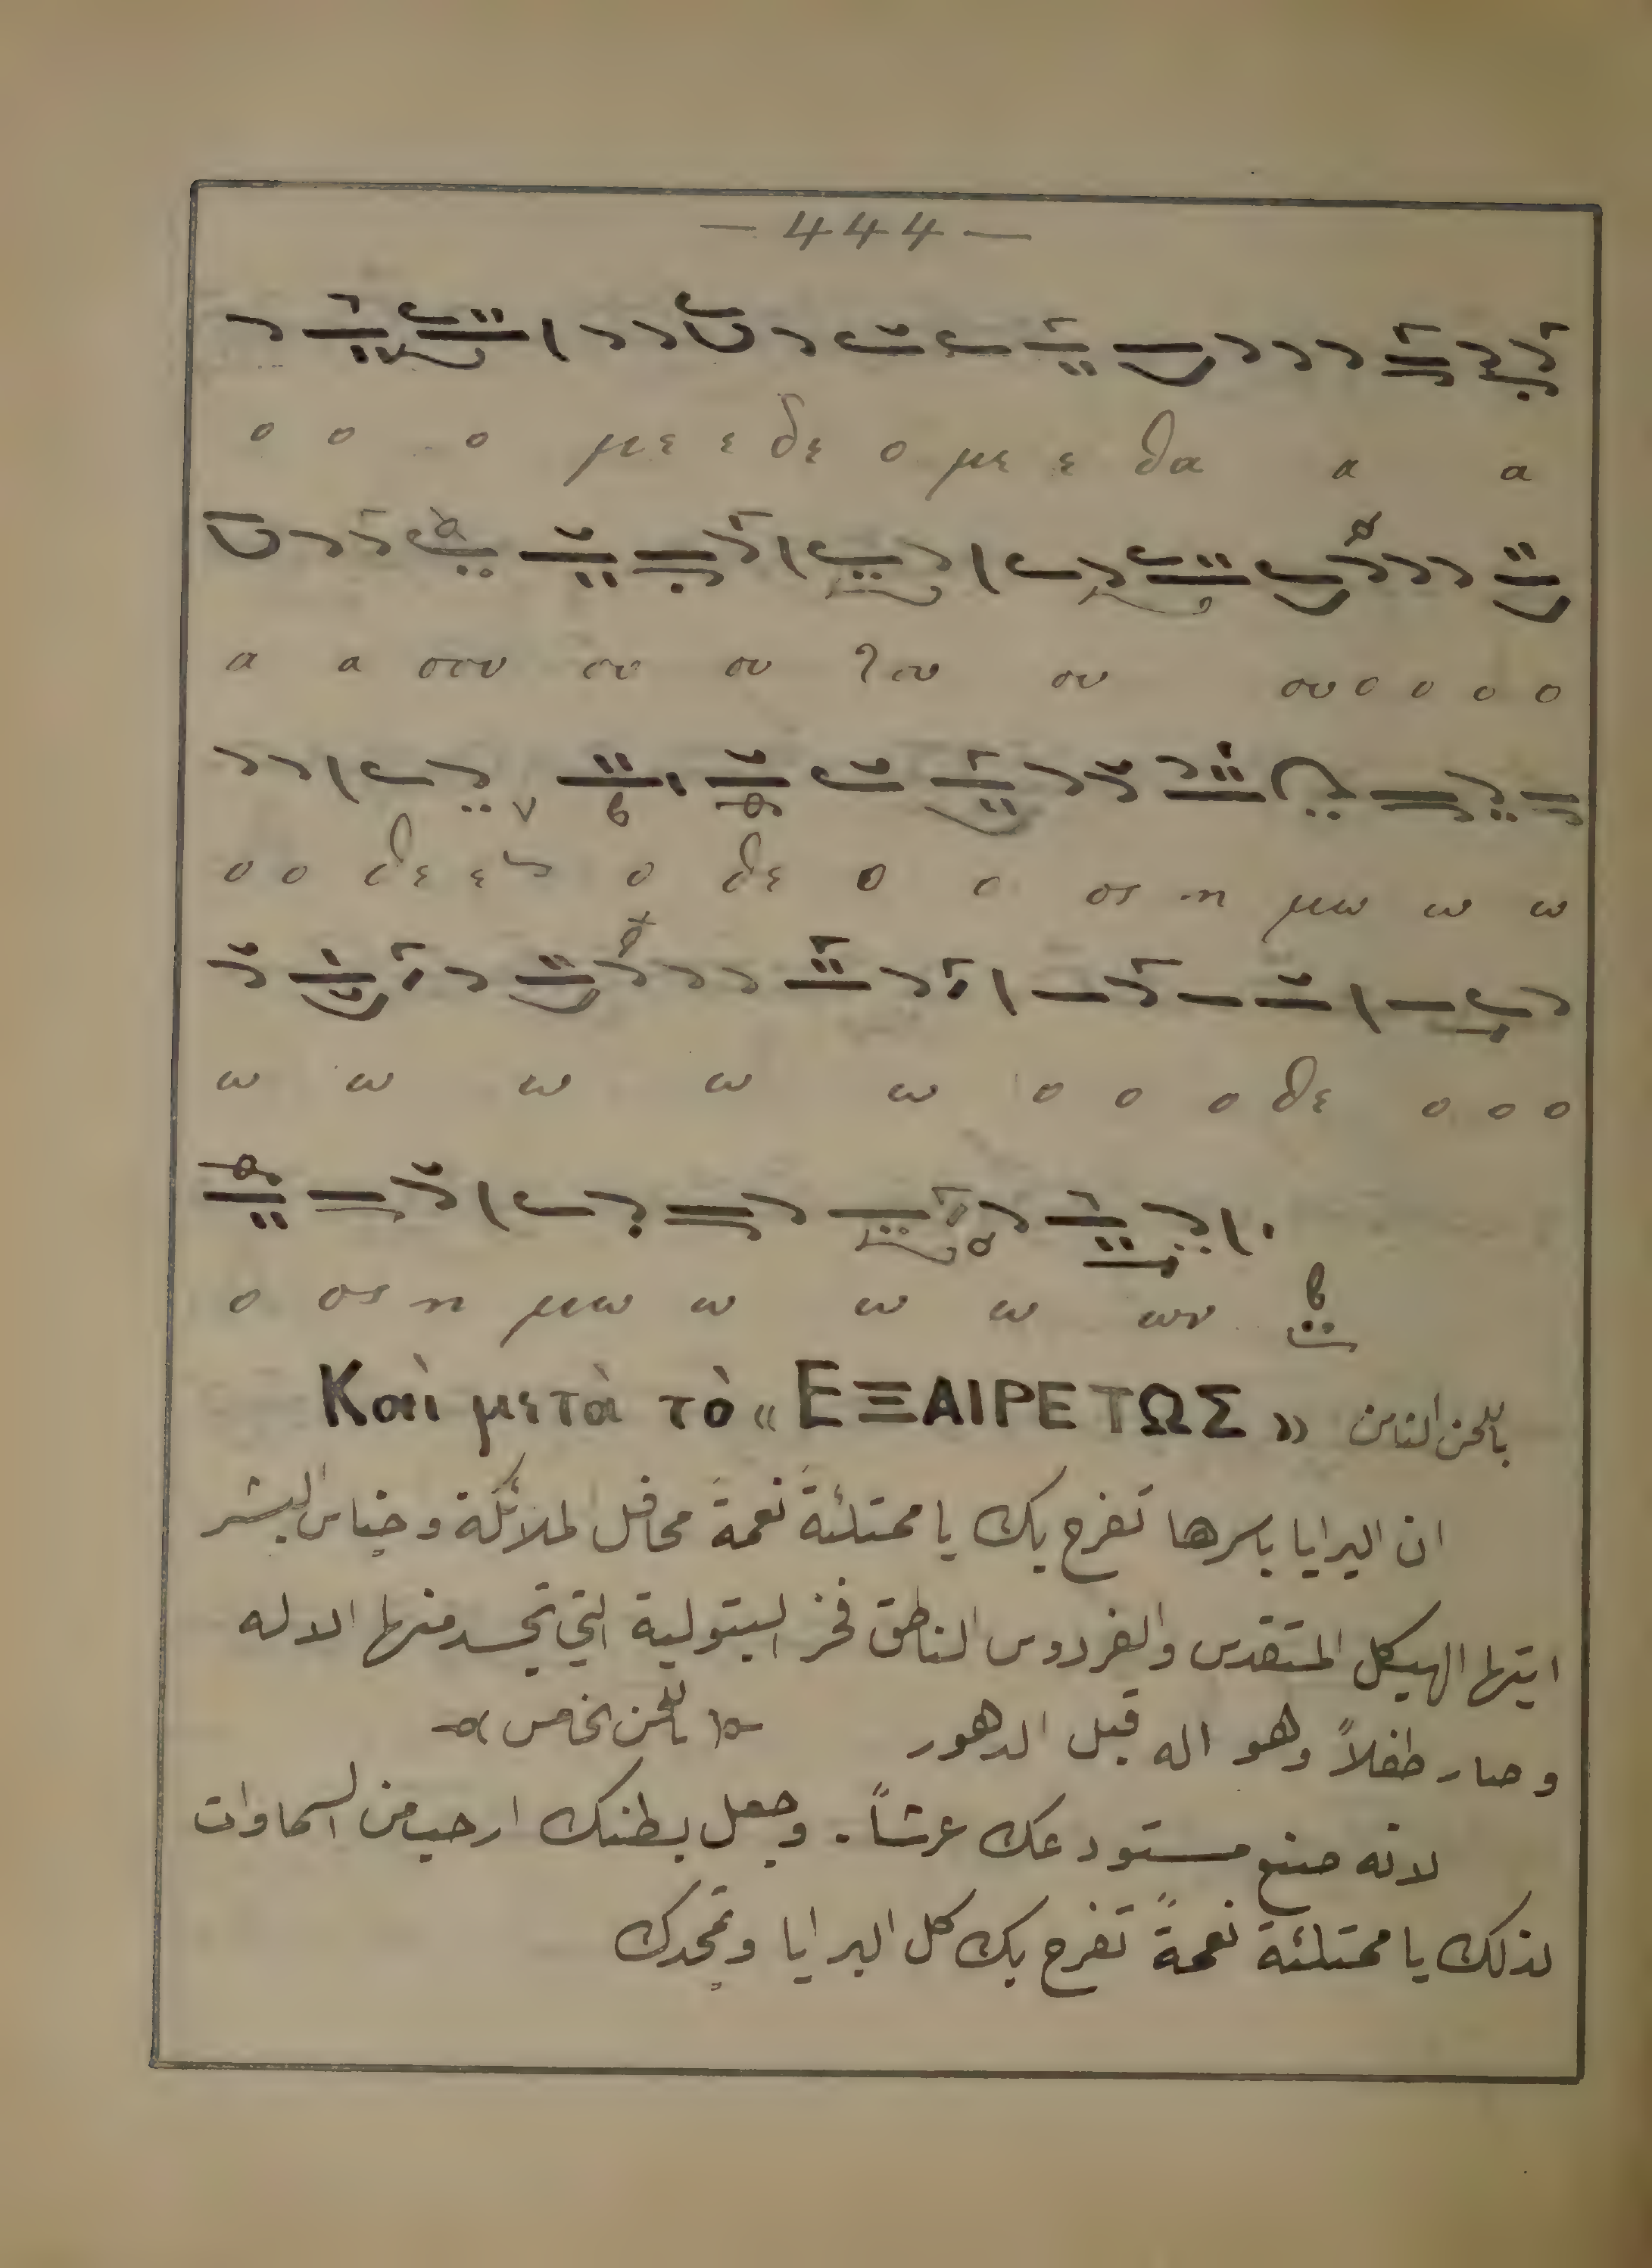 — 444 —
ο ο ο με ε δε ο με ε θα α α
α α σου ου ου ου ου ου ο ο ο ο
ο ο θε ε ο θε ο ο σι η μω ω ω
ω ω ω ω ω ο ο ο θε ο ο ο
ο σι η μω ω ω ω ων
Καὶ μετὰ τὸ « ΕΞΑΙΡΕΤΩΣ » باللحن الثامن
ان البرايا باسرها تفرح بك يا ممتلئة نعمة محافل الملائكة واجناس البشر
ايتها الهيكل المتقدس والفردوس الناطق فخر البتولية التي تجسد منها الاله
وصار طفلاً وهو اله قبل الدهور باللحن الخامس
لانه صنع مستودعك عرشاً. وجعل بطنك ارحب من السماوات
لذلك يا ممتلئة نعمةً تفرح بك كل البرايا وتمجدك